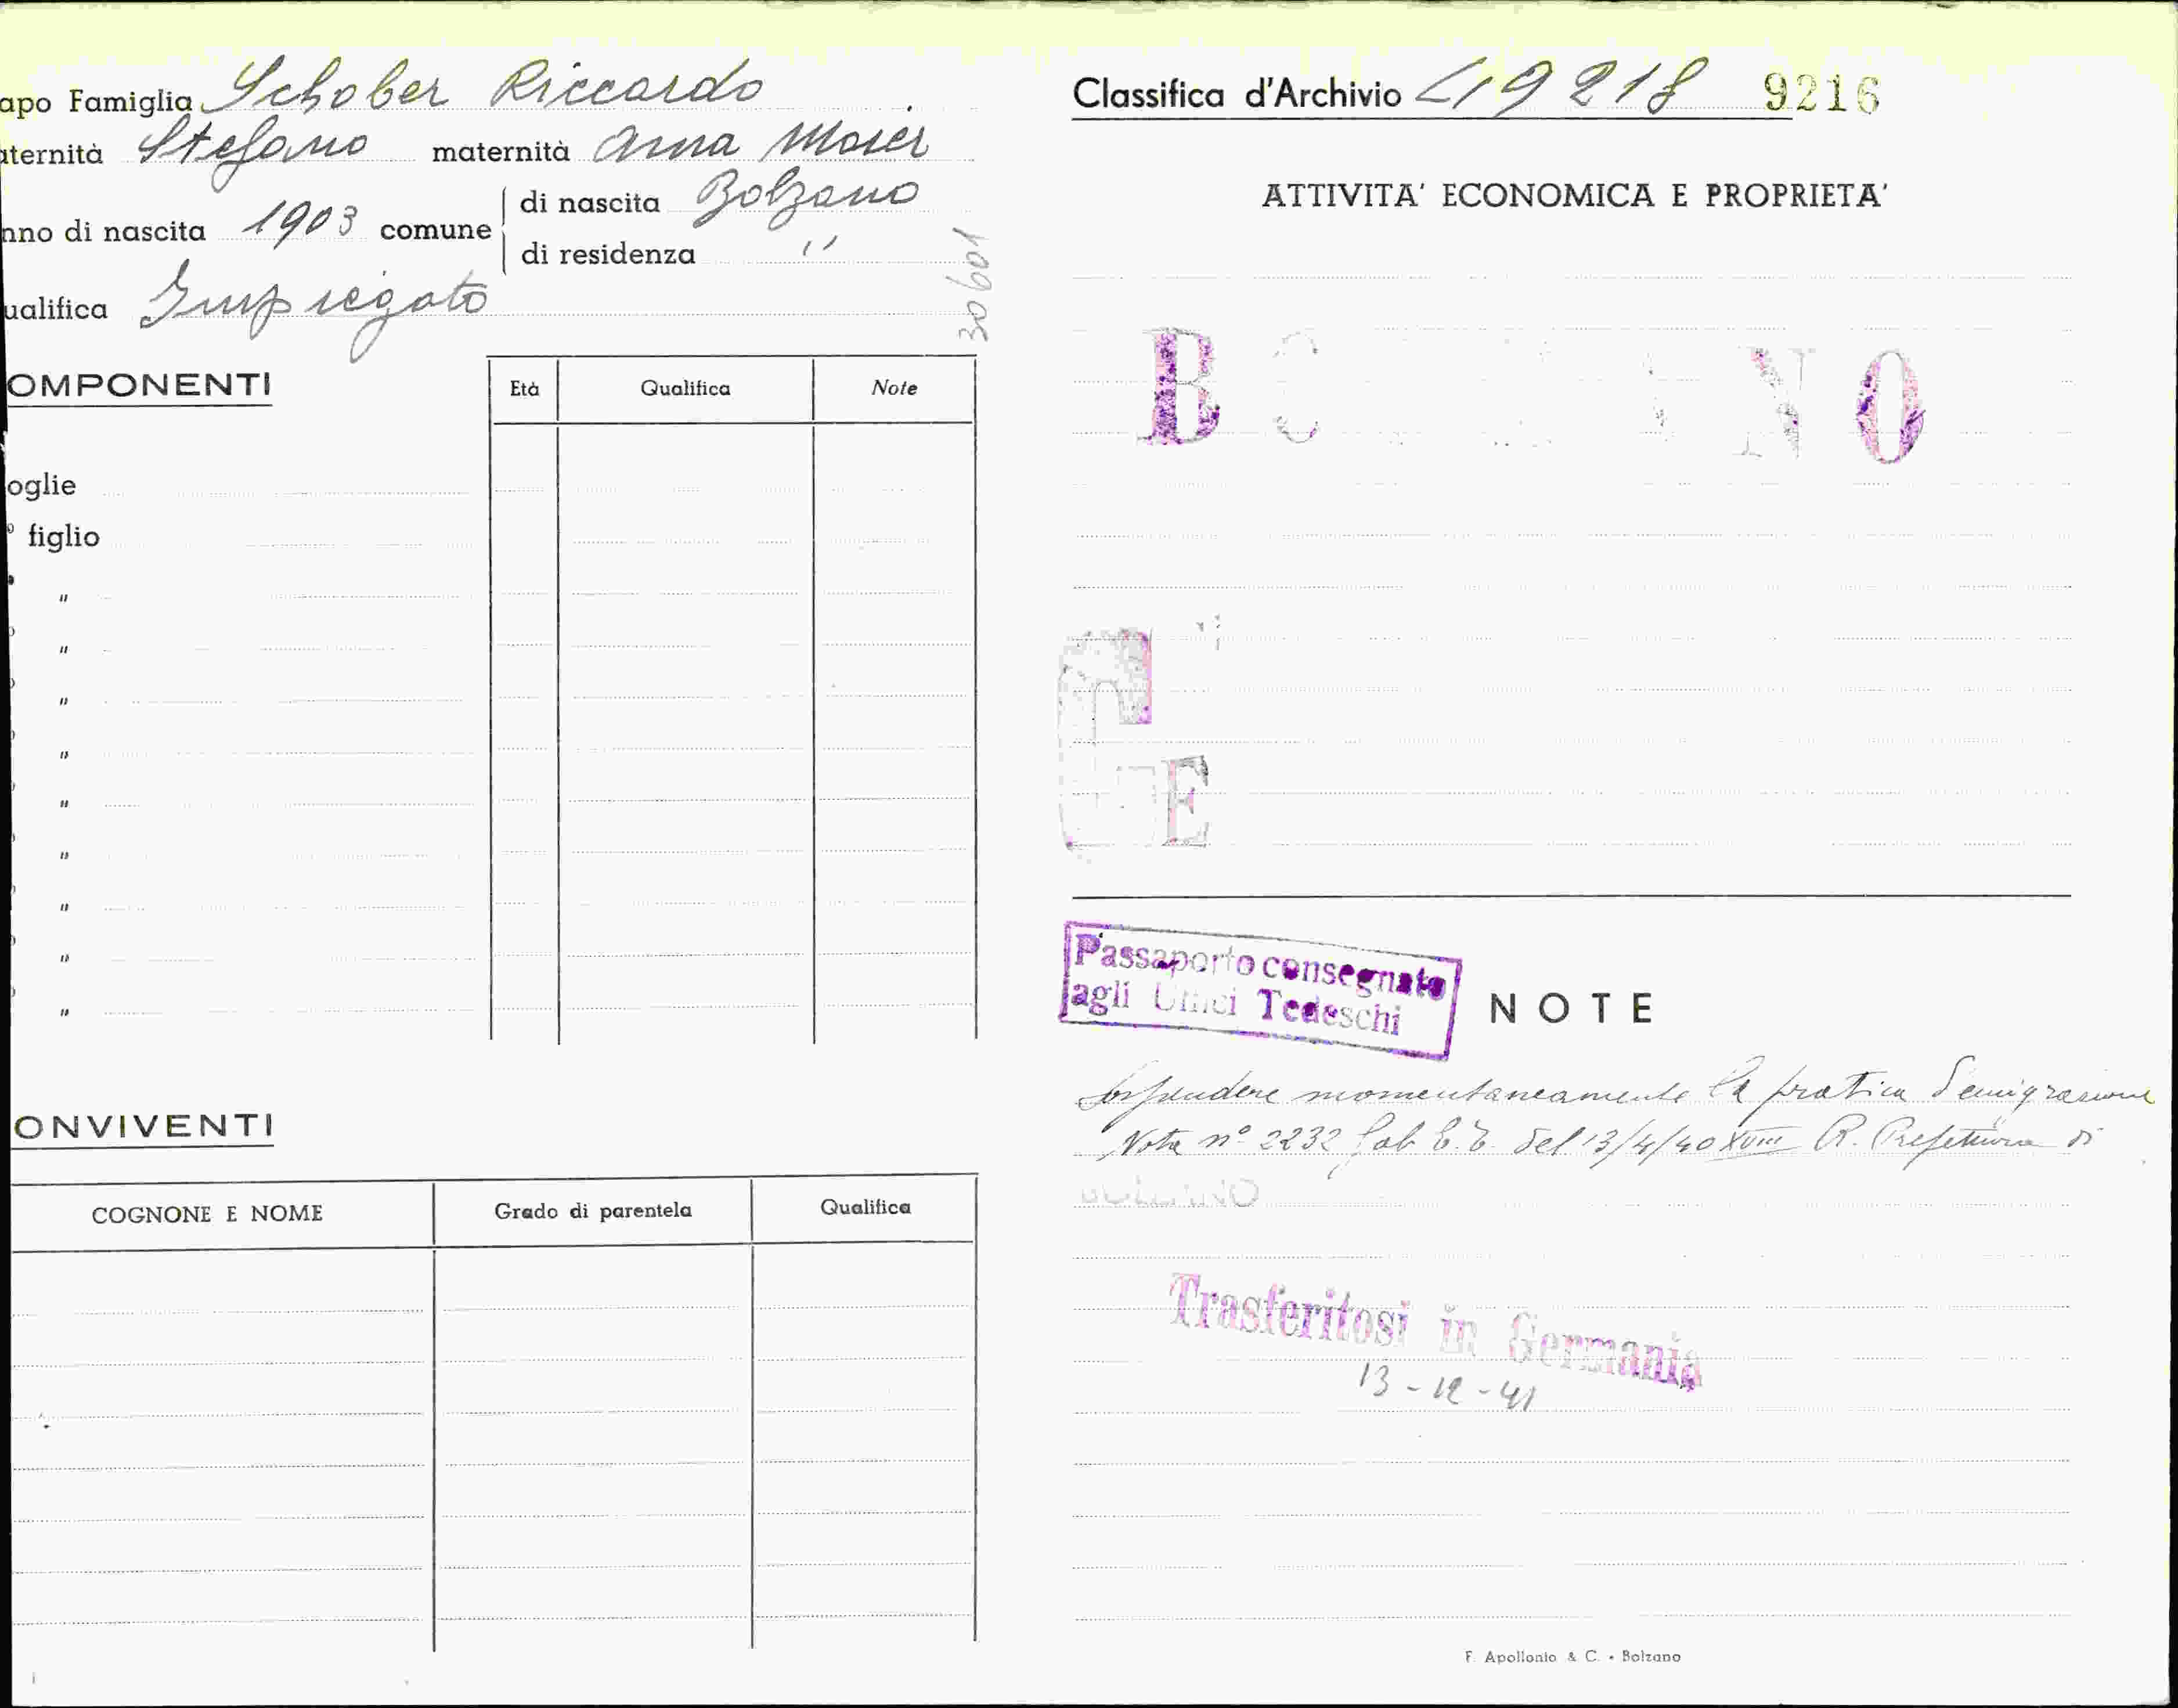 apo Famiglia Schober Riccardo
aternità Stefano maternità Anna Maier
nno di nascita 1903 comune di nascita Bolzano
di residenza "
ualifica Impiegato
30601
OMPONENTI
Età Qualifica Note
oglie
° figlio
"
"
"
"
"
"
"
"
"
ONVIVENTI
COGNONE E NOME Grado di parentela Qualifica
Classifica d'Archivio 9216
ATTIVITA' ECONOMICA E PROPRIETA'
B O N O
E
Passaporto consegnato
agli Uffici Tedeschi
NOTE
Sospendere momentaneamente la pratica d'emigrazione
Nota n° 2232 Gab E.E. del 13/4/40 XVIII R. Prefettura di
BOLZANO
Trasferitosi in Germania
13-12-41
F. Apollonio & C. - Bolzano